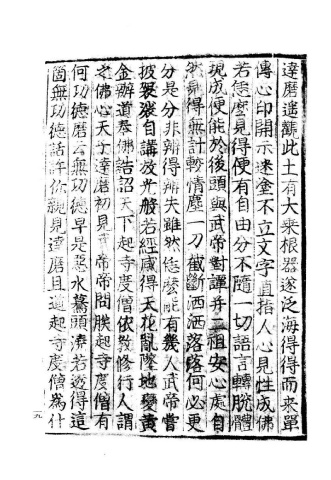 達磨遥觀此土有大乗根器遂泛海得得而來單
傳心印開示迷塗不立文字直指人心見性成佛
若恁麽見得便有自由分不隨一切語言轉脫體
現成便能於後頭與武帝對譚并二祖安心處自
然見得無計較情塵一刀截斷洒洒落落何必更
分是分非辨得辨失雖然恁麽能有幾人武帝嘗
披袈裟自講放光般若經感得天花亂墜地變黃
金辦道奉佛誥詔天下起寺度僧依教修行人謂
之佛心天子達磨初見武帝帝問朕起寺度僧有
何功德磨云無功德早是惡水驀頭澆若透得這
箇無功德話許你親見達磨且道起寺度僧爲什
九